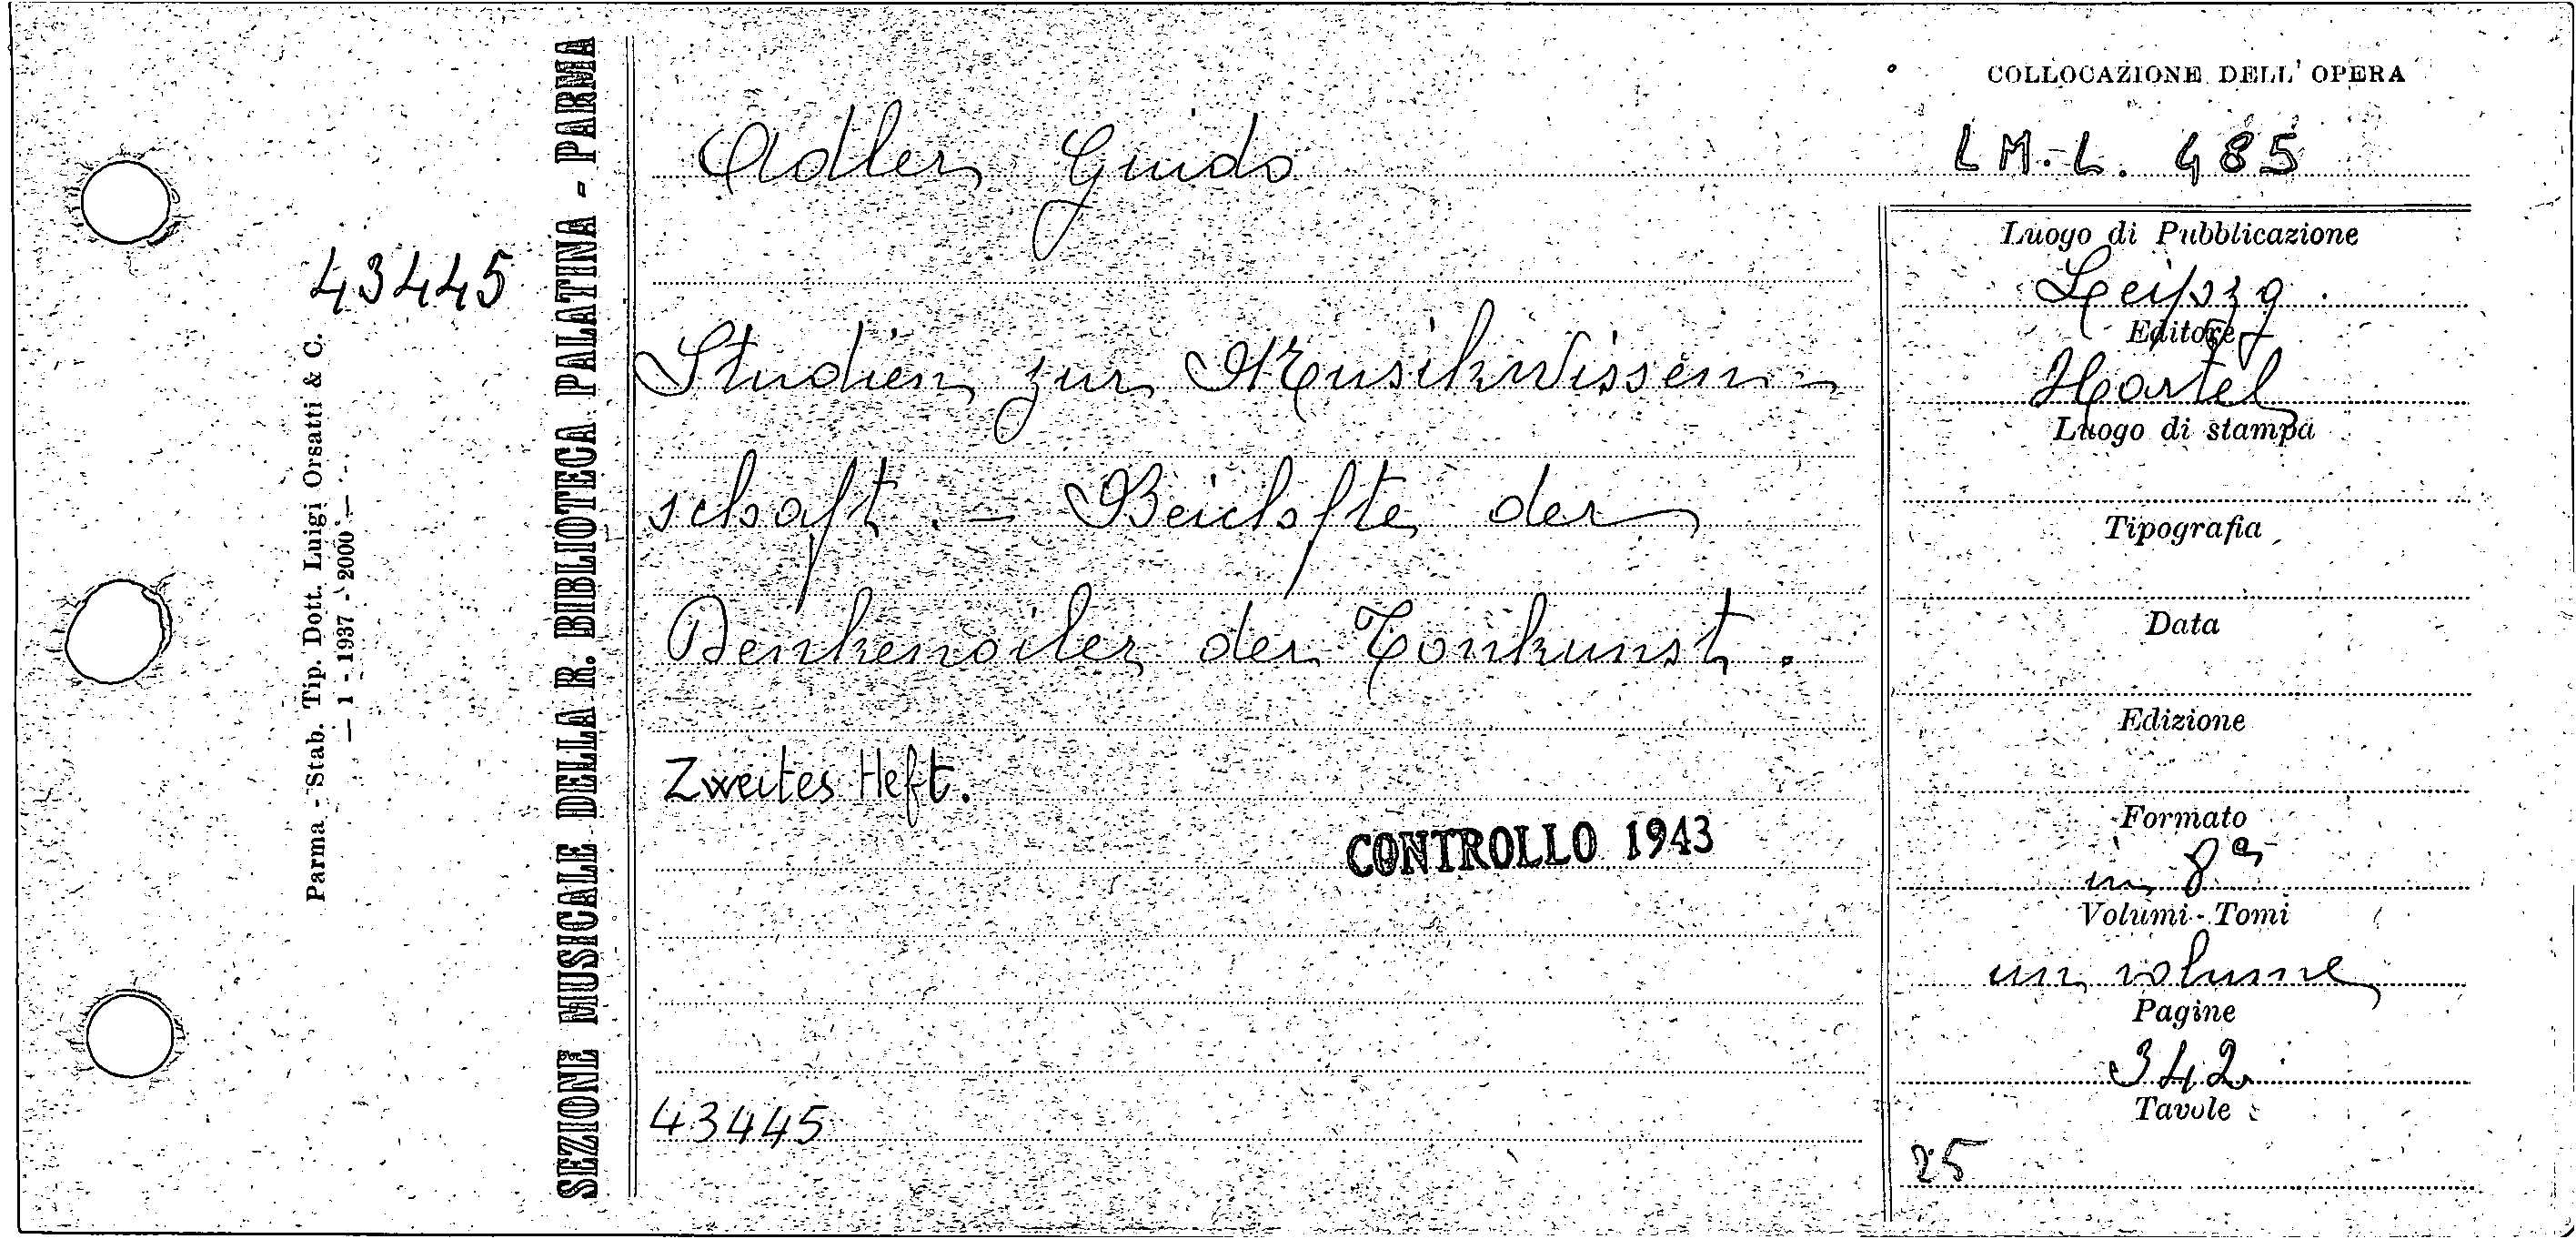 COLLOCAZIONE DELL' OPERA
LM.L. 485
Adler Guido
Studien zur Musikwissen-
schaft. - Beichefte der
Denkenoiler der Tonkunst.
Zweites Heft.
CONTROLLO 1943
43445
Luogo di Pubblicazione
Leipzg
Editore
Hartel
Luogo di stampa
Tipografia
Data
Edizione
Formato
in 8°
Volumi - Tomi
un volume
Pagine
342
Tavole
25
SEZIONE MUSICALE DELLA R. BIBLIOTECA PALATINA - PARMA
43445
Parma - Stab. Tip. Dott. Luigi Orsatti & C.
— 1 - 1937 - 2000 —